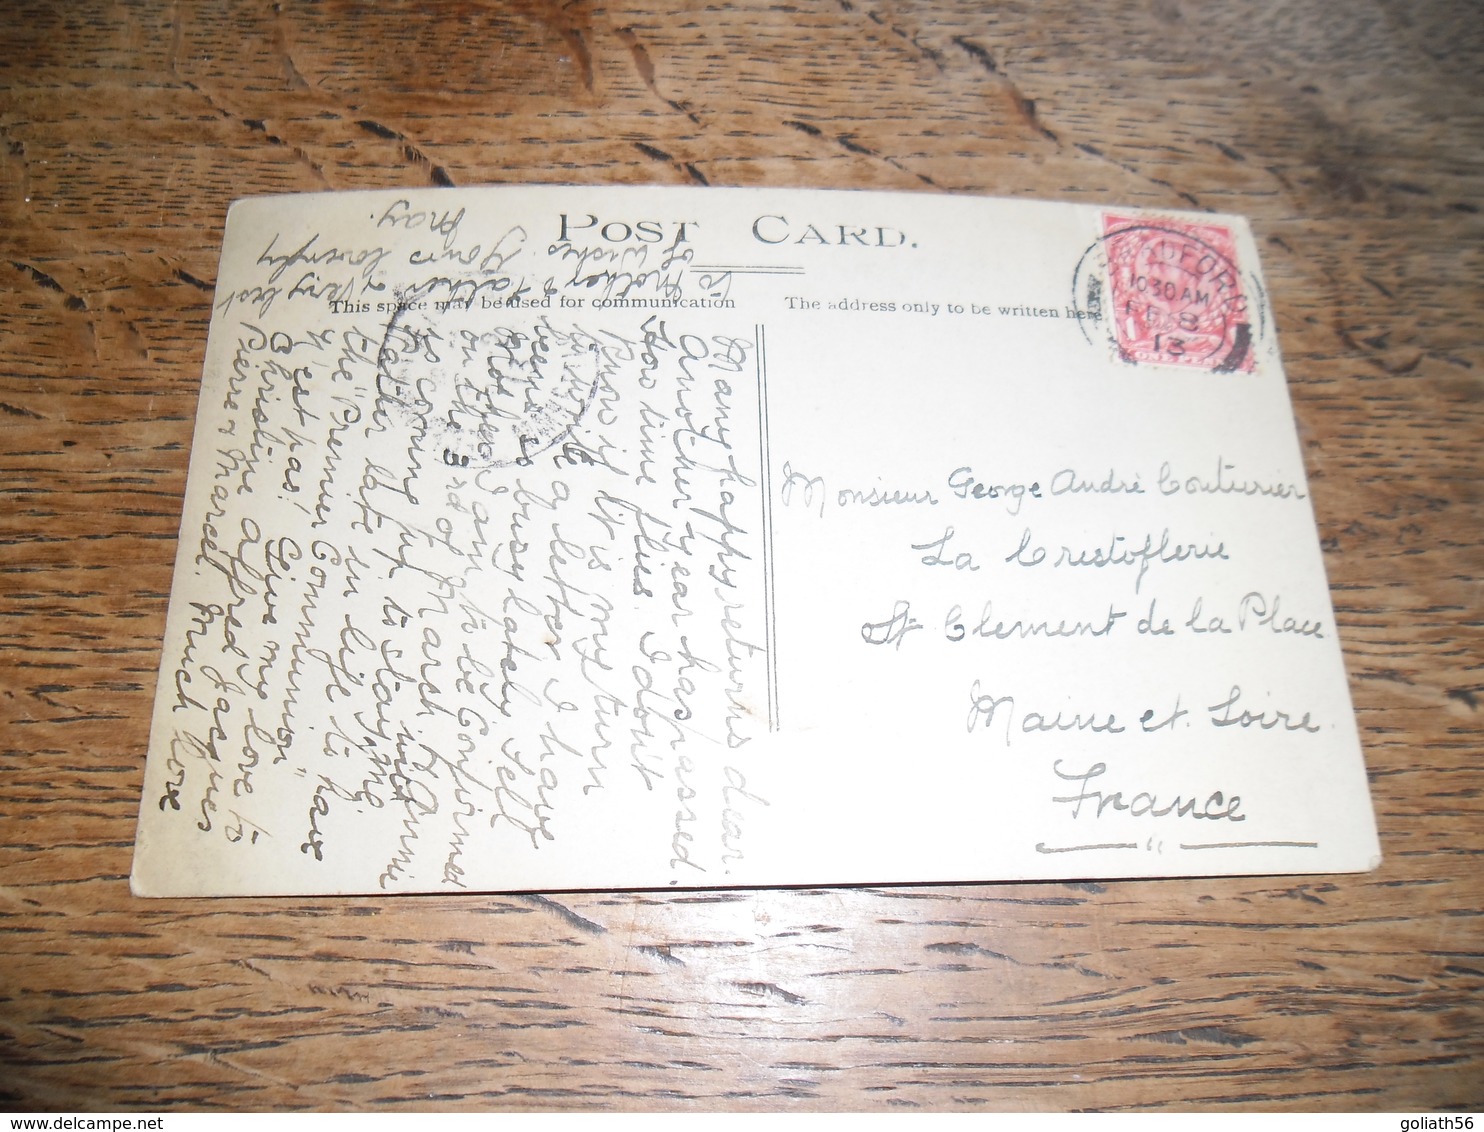 POST CARD.
This space may be used for communication
The address only to be written here
BRADFORD
10.30 AM
FE 8
13
Monsieur George André Couturier
La Cristoflerie
St Clement de la Place
Maine et Loire
France
Many happy returns dear.
Another year has passed.
How time flies. I don't
know if it is my turn
to write a letter. I have
been so busy lately. Self
not
on the 3rd of March. Annie
I am to be Confirmed
is coming up to stay with
Father late in life to have
the "Premier Communion"
N'est pas! Give my love to
Christine Alfred Jacques
Pierre & Marcel. Much love
to Mother & Father & Very best
of Wishes. Yours lovingly
May.
goliath56